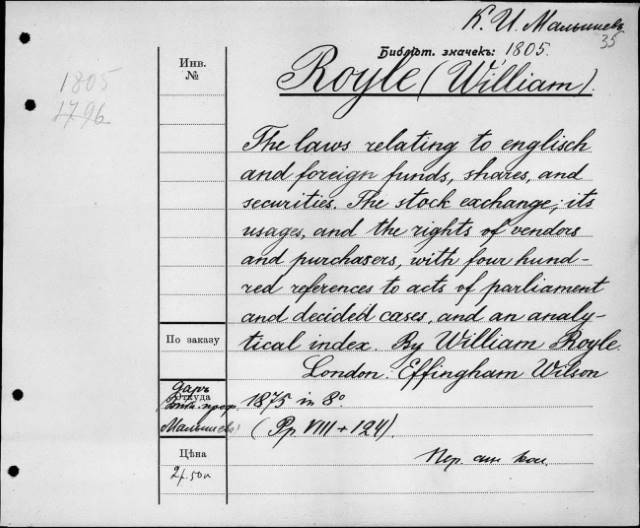 К. И. Малышевъ
35
Библiот. значекъ: 1805.
Инв.
№
1805
1796
Royle (William).
The laws relating to englisch
and foreign funds, shares, and
securities. The stock exchange; its
usages, and the rights of vendors
and purchasers, with four hund-
red references to acts of parliament
and decided cases, and an analy-
tical index. By William Royle.
London. Effingham Wilson
1875 in 8º
(Pp. VIII + 124).
По заказу
Откуда
даръ
проф.
Малышева
Цѣна
2 р. 50 к
Пер.